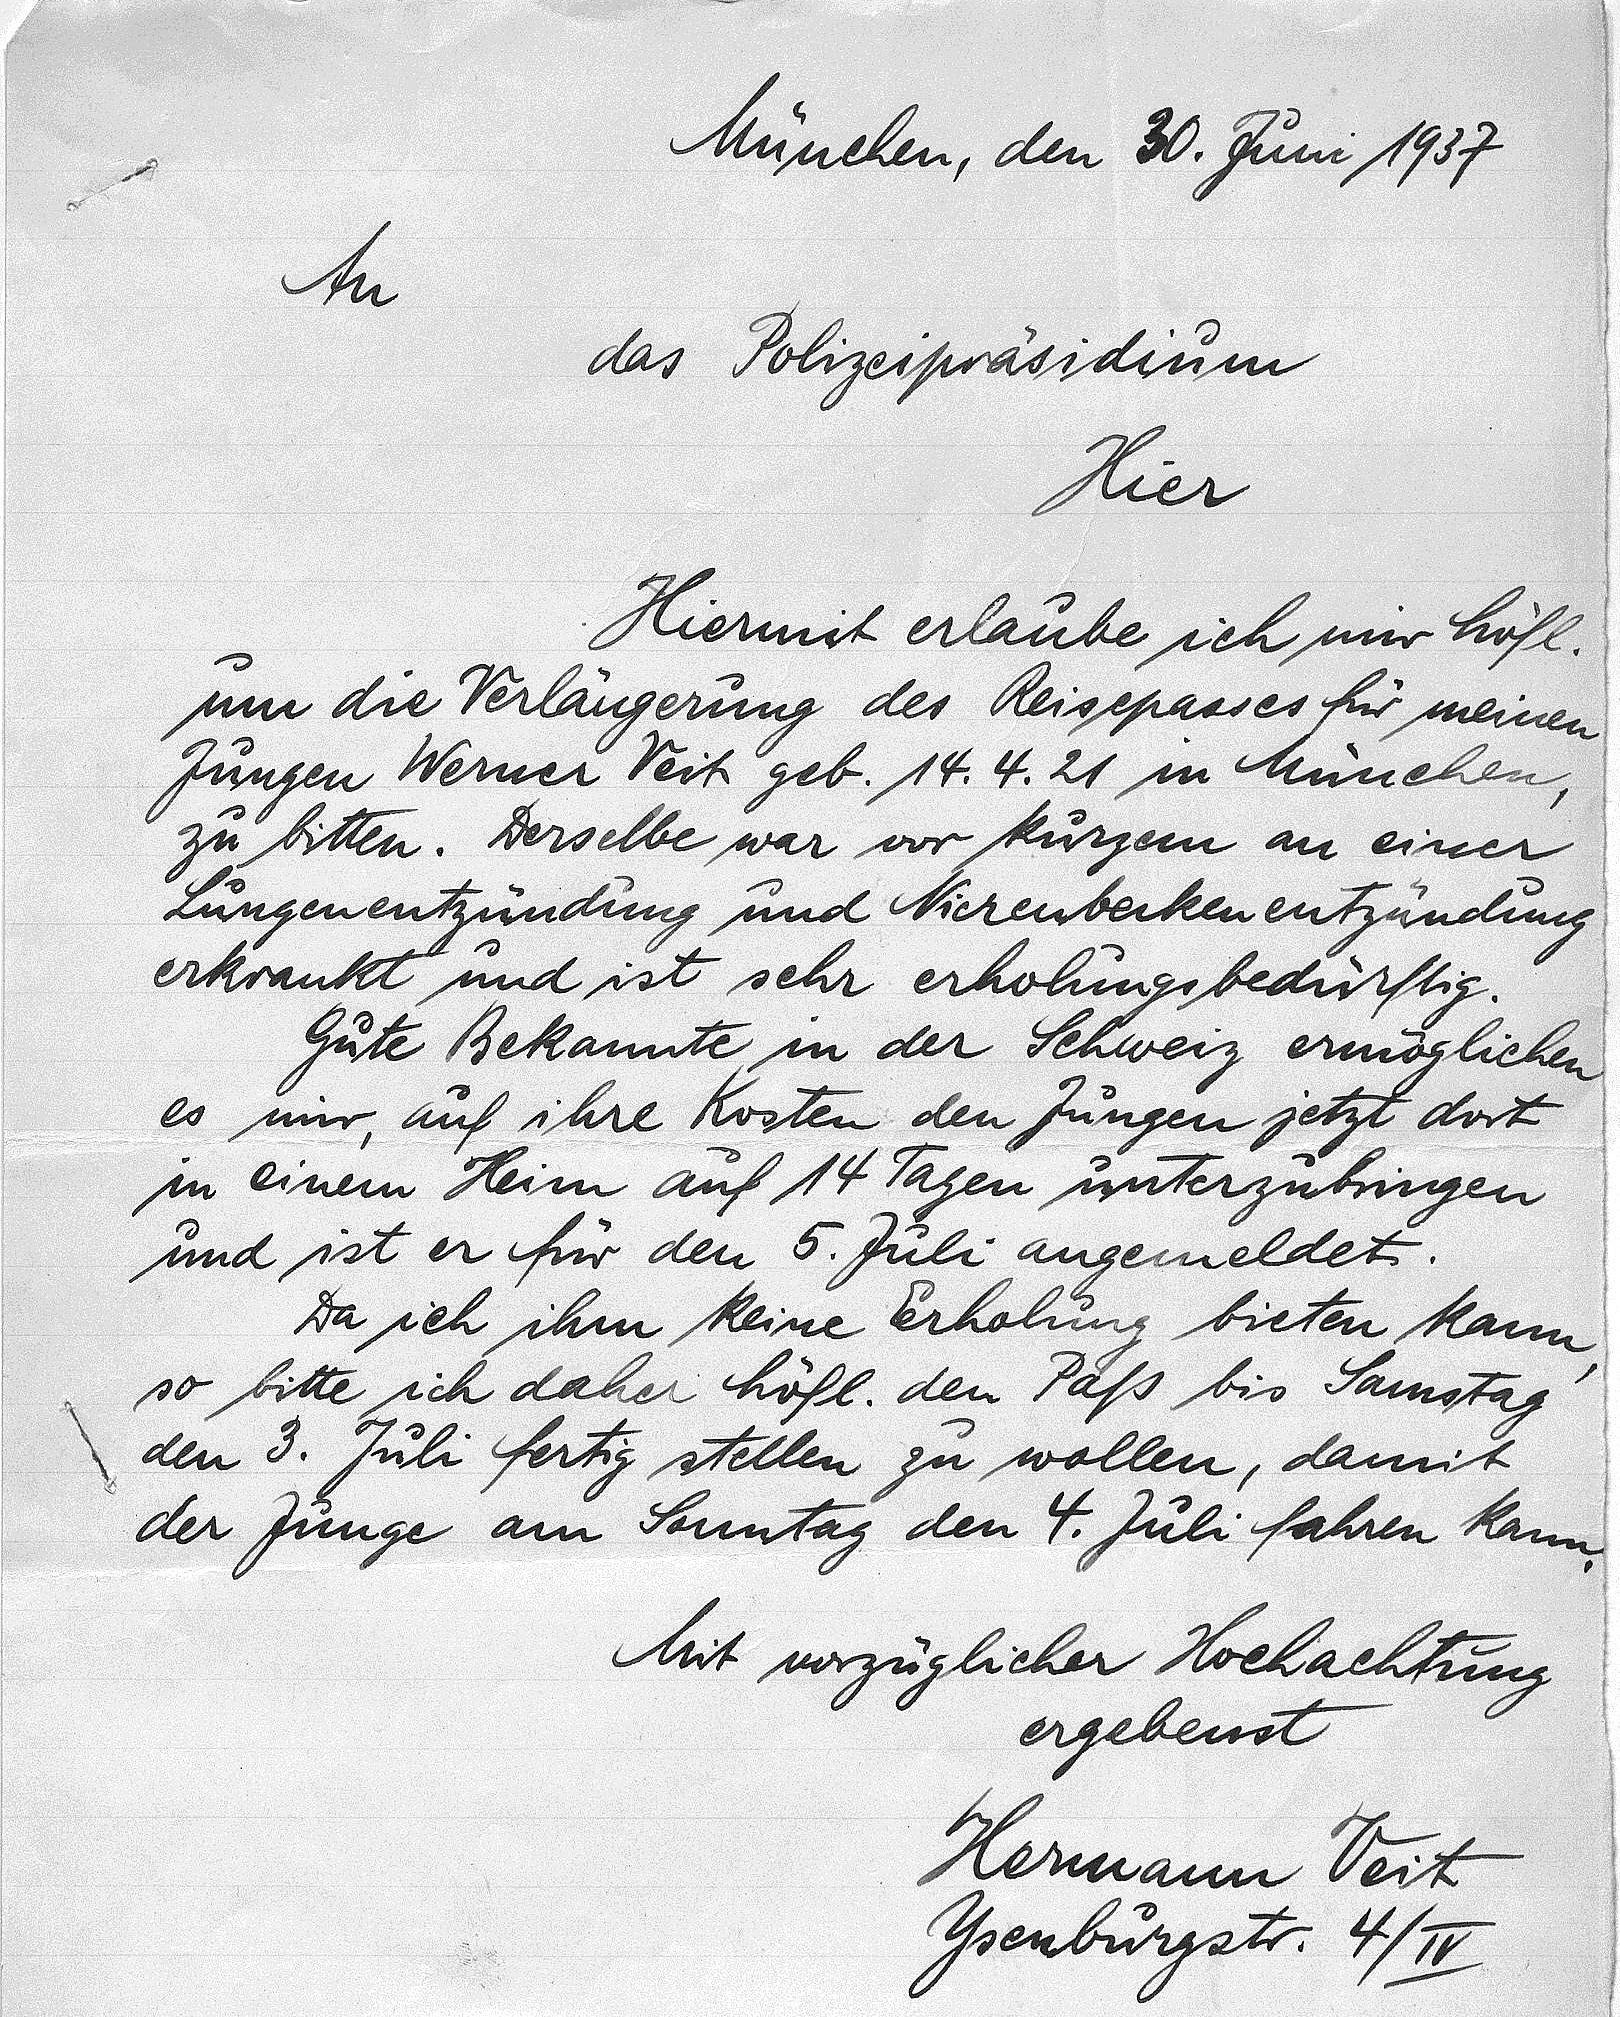 München, den 30. Juni 1937
An
das Polizeipräsidium
Hier
Hiermit erlaube ich mir höfl.
um die Verlängerung des Reisepasses für meinen
Jungen Werner Veit geb. 14. 4. 21 in München,
zu bitten. Derselbe war vor kurzem an einer
Lungenentzündung und Nierenbeckenentzündung
erkrankt und ist sehr erholungsbedürftig.
Gute Bekannte in der Schweiz ermöglichen
es mir, auf ihre Kosten den Jungen jetzt dort
in einem Heim auf 14 Tagen unterzubringen
und ist er für den 5. Juli angemeldet.
Da ich ihm keine Erholung bieten kann,
so bitte ich daher höfl. den Paß bis Samstag
den 3. Juli fertig stellen zu wollen, damit
der Junge am Sonntag den 4. Juli fahren kann.
Mit vorzüglicher Hochachtung
ergebenst
Hermann Veit
Ysenburgstr. 4/IV